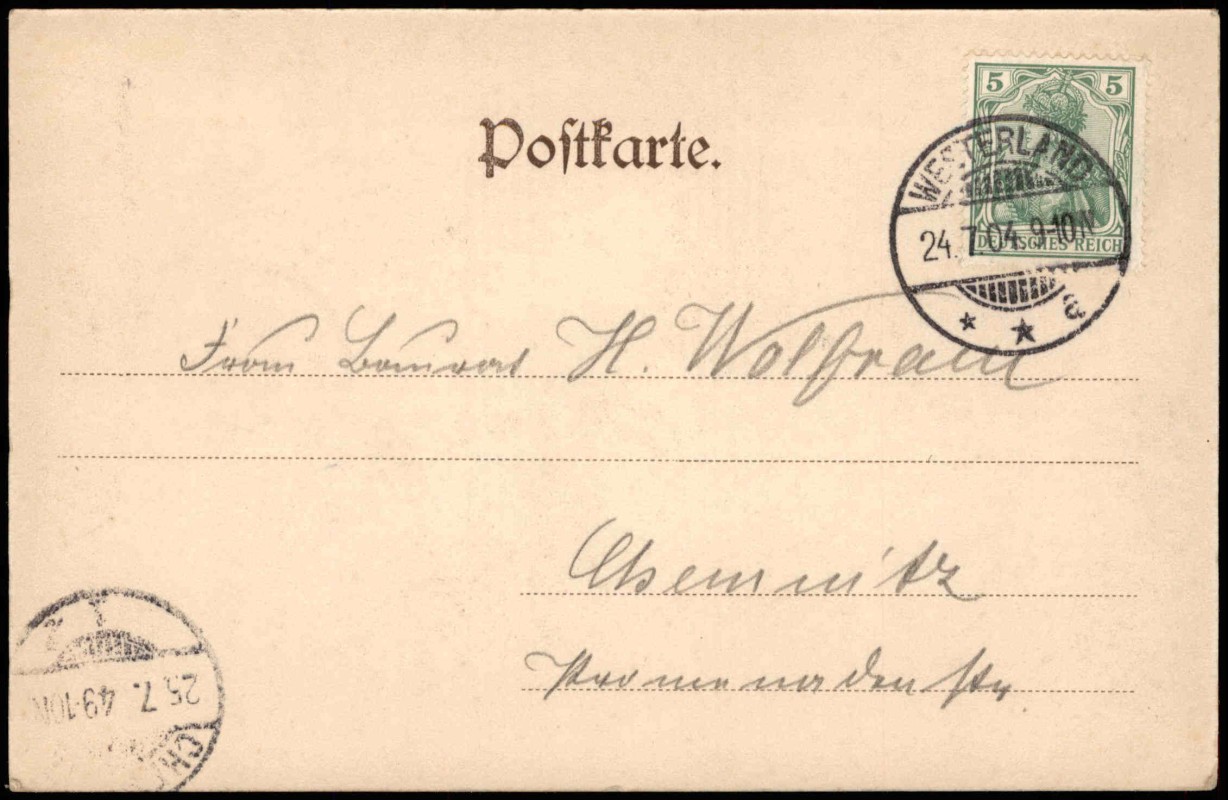 5 5
DEUTSCHES REICH
WESTERLAND
24.7.04. 9-10N
a
Postkarte.
Frau Baurat H. Wolfram
Chemnitz
Promenadenstr.
25.7. 4 9-10N
CH